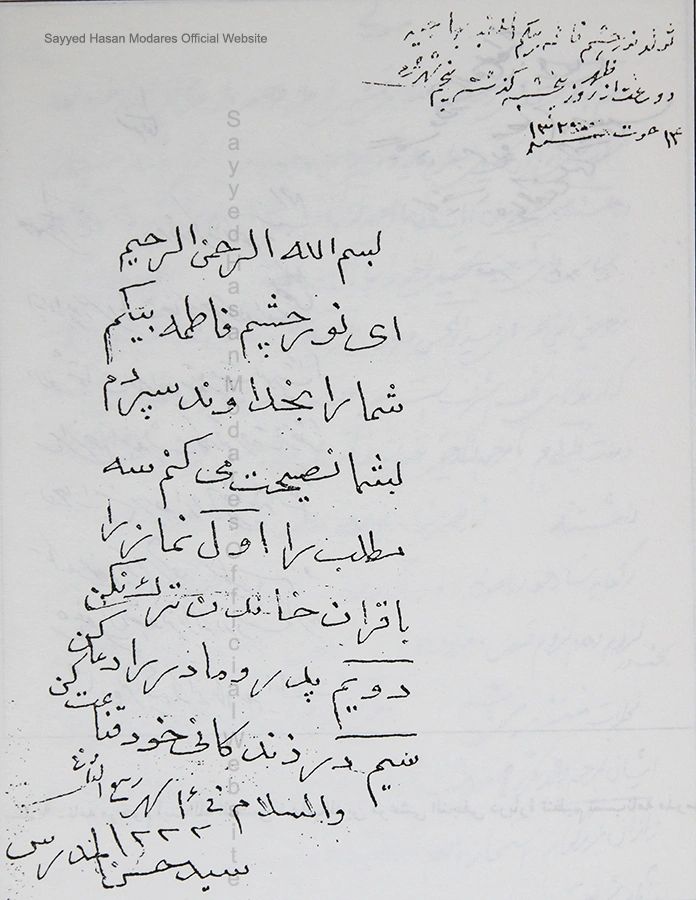 Sayyed Hasan Modares Official Website
تولد نورچشم فاطمه بیگم
دو ساعت از ظهر روز پنجشنبه گذشته پنجم شهر
۱۳ حوت سنه ۱۳۲
بسم الله الرحمن الرحیم
ای نورچشم فاطمه بیگم
شما را بخداوند سپردم
بشما نصیحت می کنم سه
مطلب را اول نماز را
با قران خاندن ترک نکن
دویم پدر و مادر را دعا کن
سیم در زندکانی خود قناعت کن
والسلام فی شهر ربیع الثانی
۱۳۳۲
سید حسن المدرس
Sayyed Hasan Modares Official Website